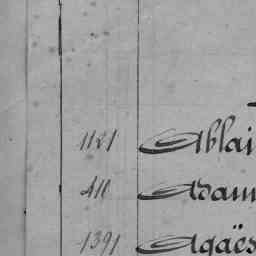 1121 Ablai
410 Adam
1391 Agaës